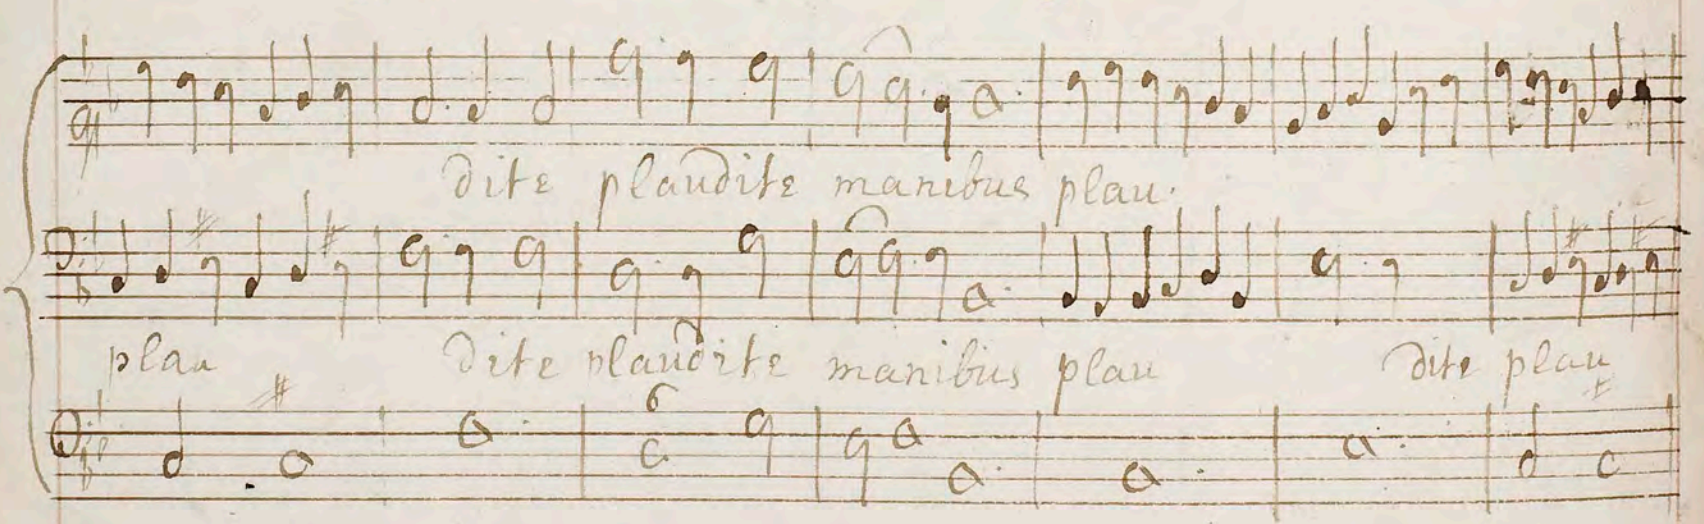 dite plaudite manibus plau.
plau dite plaudite manibus plau dite plau
6